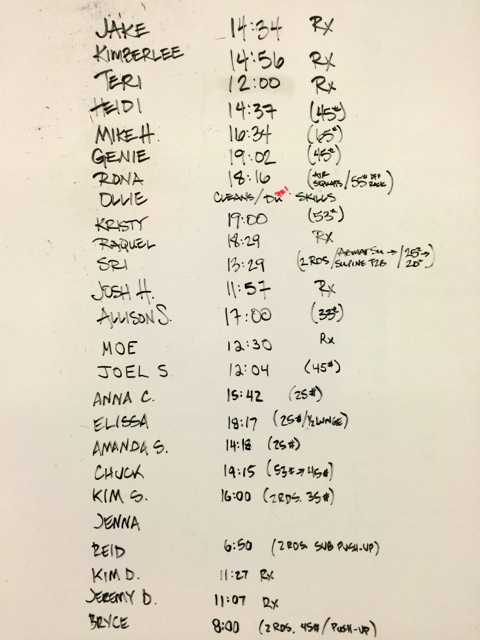 JAKE 14:34 Rx
KIMBERLEE 14:56 Rx
TERI 12:00 Rx
HEIDI 14:37 (45#)
MIKE H. 16:34 (65#)
GENIE 19:02 (45#)
RONA 18:16 (AIR SQUATS/55# OFF RACK)
OLLIE CLEANS/DU SKILLS
KRISTY 19:00 (53#)
RAQUEL 18:29 Rx
SRI 13:29 (2 RDS/ABMAT SU → SUPINE T2B/25# → 20#)
JOSH H. 11:57 Rx
ALLISON S. 17:00 (35#)
MOE 12:30 Rx
JOEL S 12:04 (45#)
ANNA C. 15:42 (25#)
ELISSA 18:17 (25#/½ LUNGE)
AMANDA S. 14:18 (25#)
CHUCK 19:15 (53# → 45#)
KIM S. 16:00 (2RDS. 35#)
JENNA
REID 6:50 (2 RDS. SUB PUSH-UP)
KIM D. 11:27 Rx
JEREMY D. 11:07 Rx
BRYCE 8:00 (2 RDS. 45#/PUSH-UP)